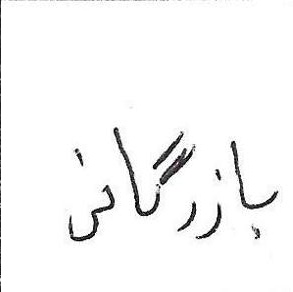 بازرگانی